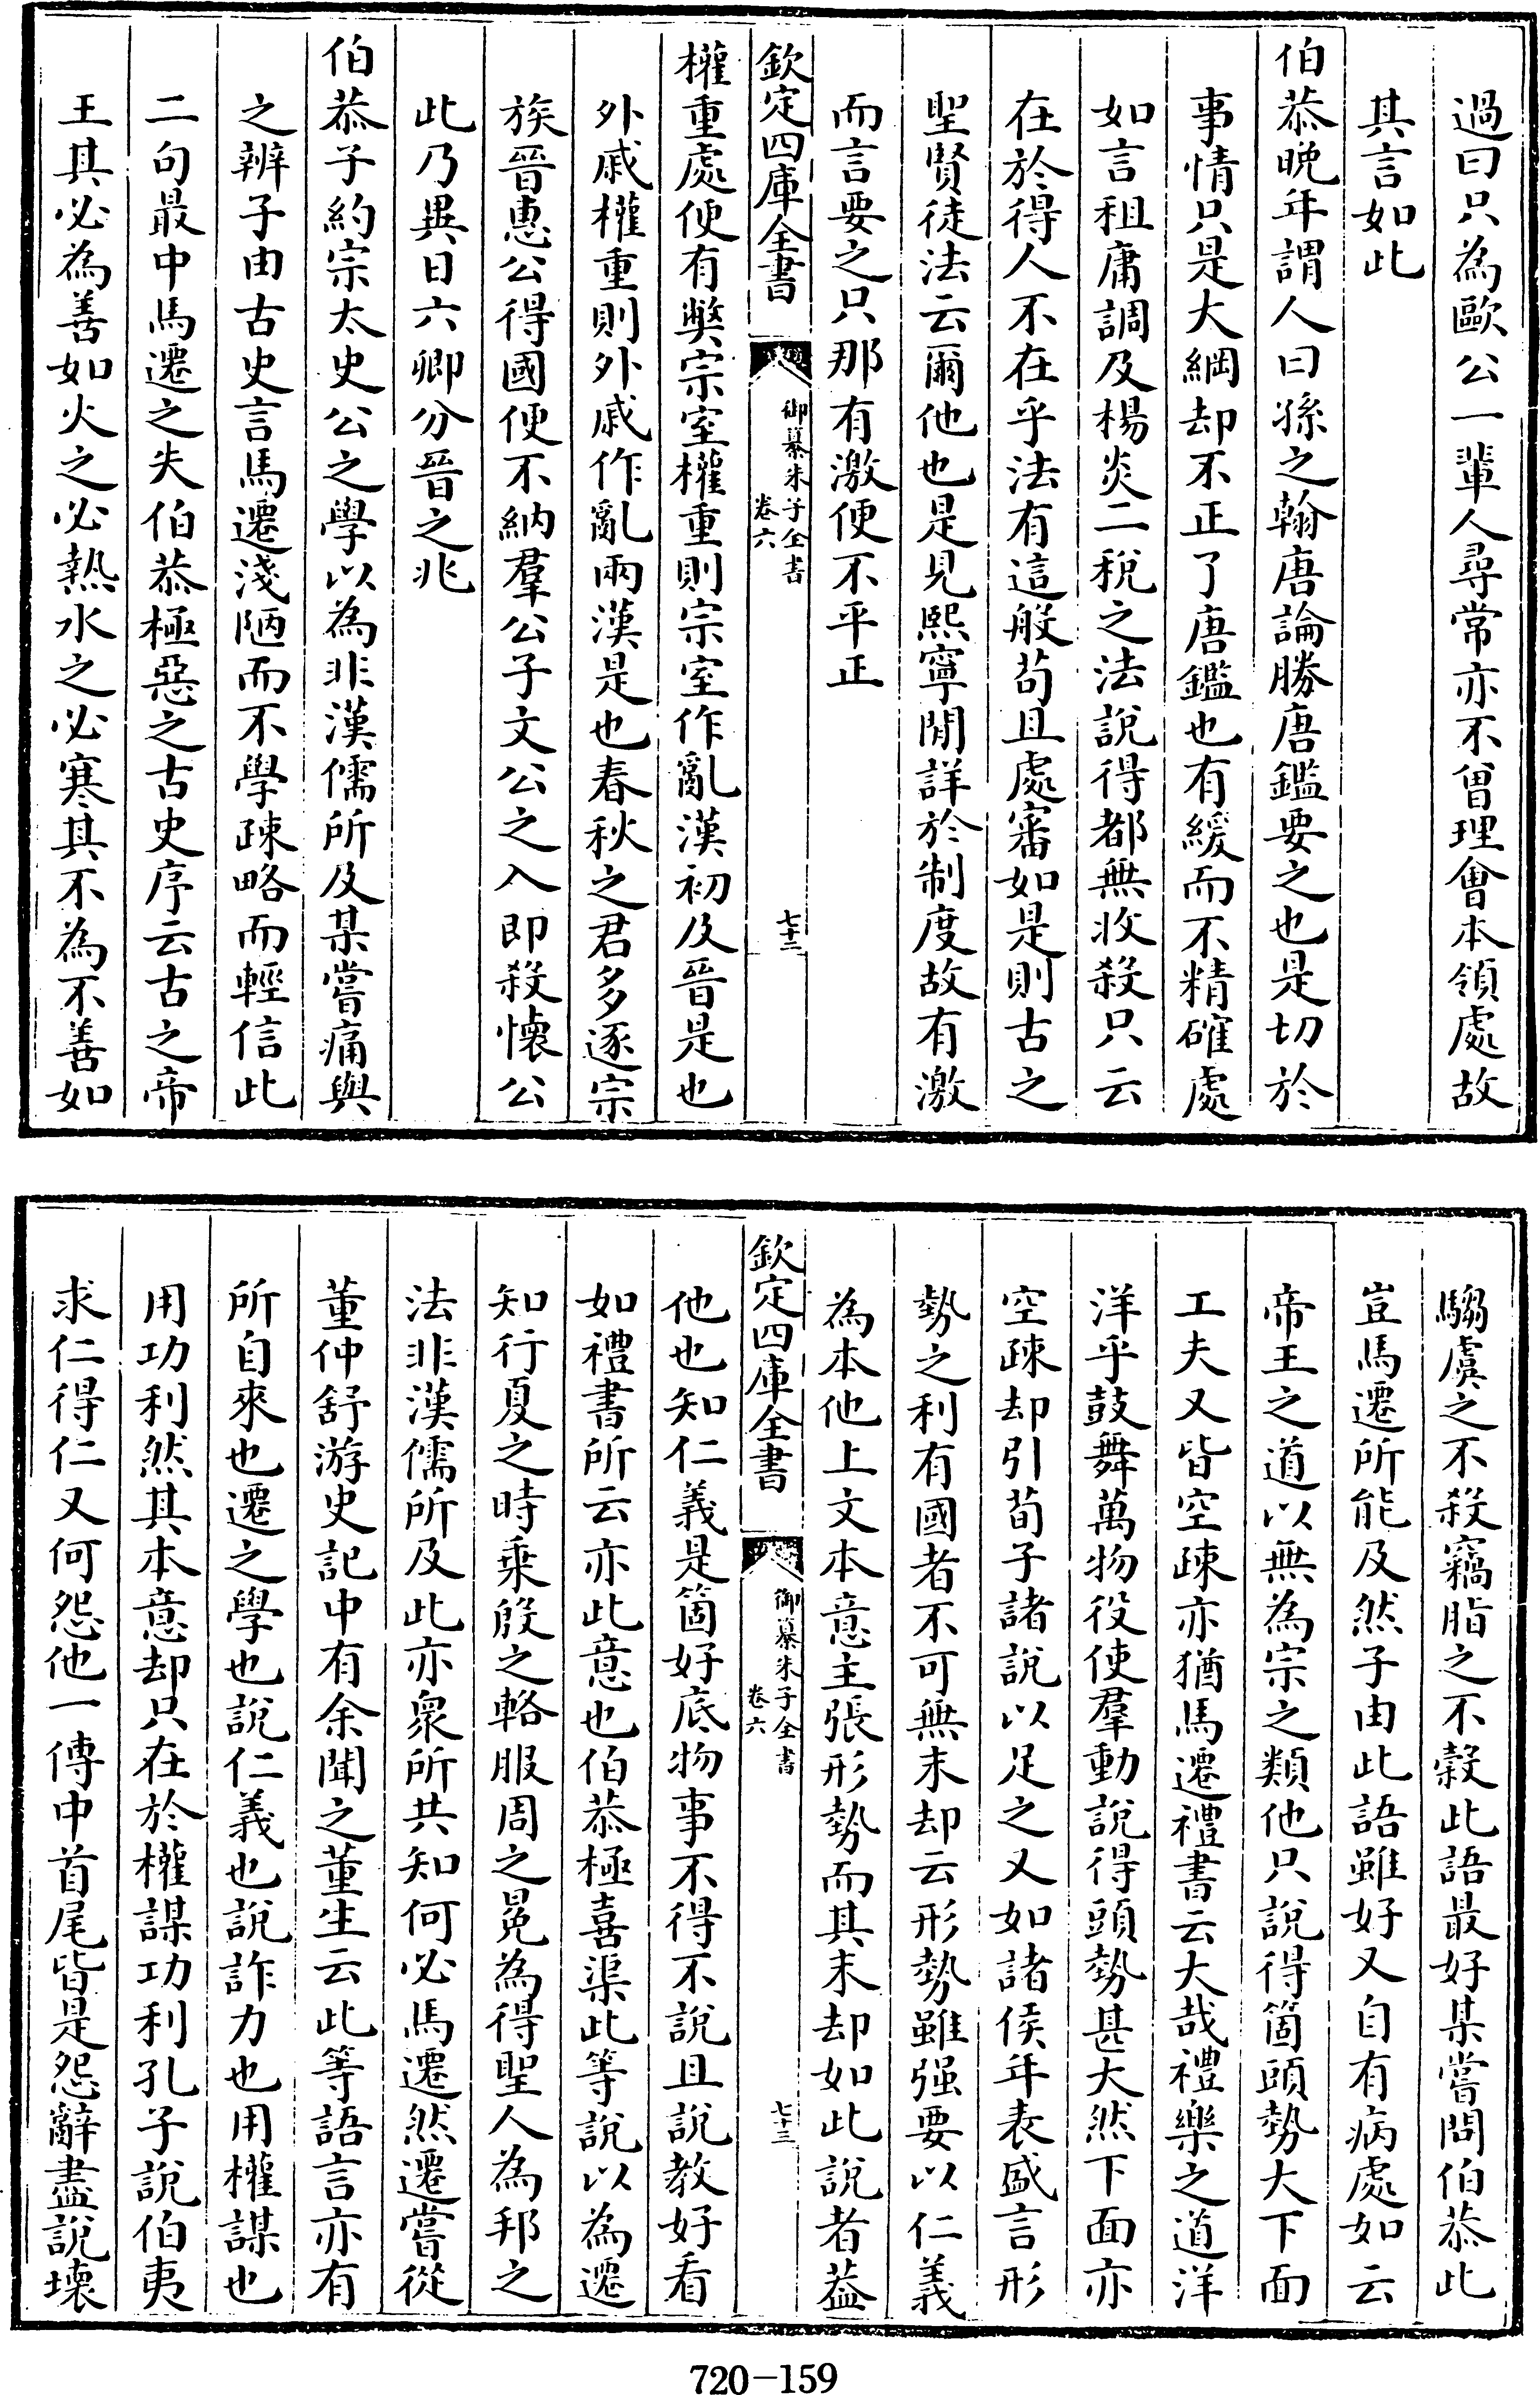 過曰只為歐公一輩人尋常亦不曾理會本領處故
其言如此
伯恭晚年謂人曰孫之翰唐論勝唐鑑要之也是切於
事情只是大綱却不正了唐鑑也有緩而不精確處
如言租庸調及楊炎二稅之法說得都無收殺只云
在於得人不在乎法有這般苟且處審如是則古之
聖賢徒法云爾他也是見熙寧間詳於制度故有激
而言要之只那有激便不平正
欽定四庫全書
御纂朱子全書
卷六
七十二
權重處便有弊宗室權重則宗室作亂漢初及晉是也
外戚權重則外戚作亂兩漢是也春秋之君多逐宗
族晉惠公得國便不納羣公子文公之入即殺懷公
此乃異日六卿分晉之兆
伯恭子約宗太史公之學以為非漢儒所及某嘗痛與
之辨子由古史言馬遷淺陋而不學疎略而輕信此
二句最中馬遷之失伯恭極惡之古史序云古之帝
王其必為善如火之必熱水之必寒其不為不善如
騶虞之不殺竊脂之不穀此語最好某嘗問伯恭此
豈馬遷所能及然子由此語雖好又自有病處如云
帝王之道以無為宗之類他只說得箇頭勢大下面
工夫又皆空疎亦猶馬遷禮書云大哉禮樂之道洋
洋乎鼓舞萬物役使羣動說得頭勢甚大然下面亦
空疎却引荀子諸說以足之又如諸侯年表盛言形
勢之利有國者不可無末却云形勢雖强要以仁義
為本他上文本意主張形勢而其末却如此說者葢
欽定四庫全書
御纂朱子全書
卷六
七十三
他也知仁義是箇好底物事不得不說且說教好看
如禮書所云亦此意也伯恭極喜渠此等說以為遷
知行夏之時乘殷之輅服周之冕為得聖人為邦之
法非漢儒所及此亦衆所共知何必馬遷然遷嘗從
董仲舒游史記中有余聞之董生云此等語言亦有
所自來也遷之學也說仁義也說詐力也用權謀也
用功利然其本意却只在於權謀功利孔子說伯夷
求仁得仁又何怨他一傳中首尾皆是怨辭盡說壞
720-159